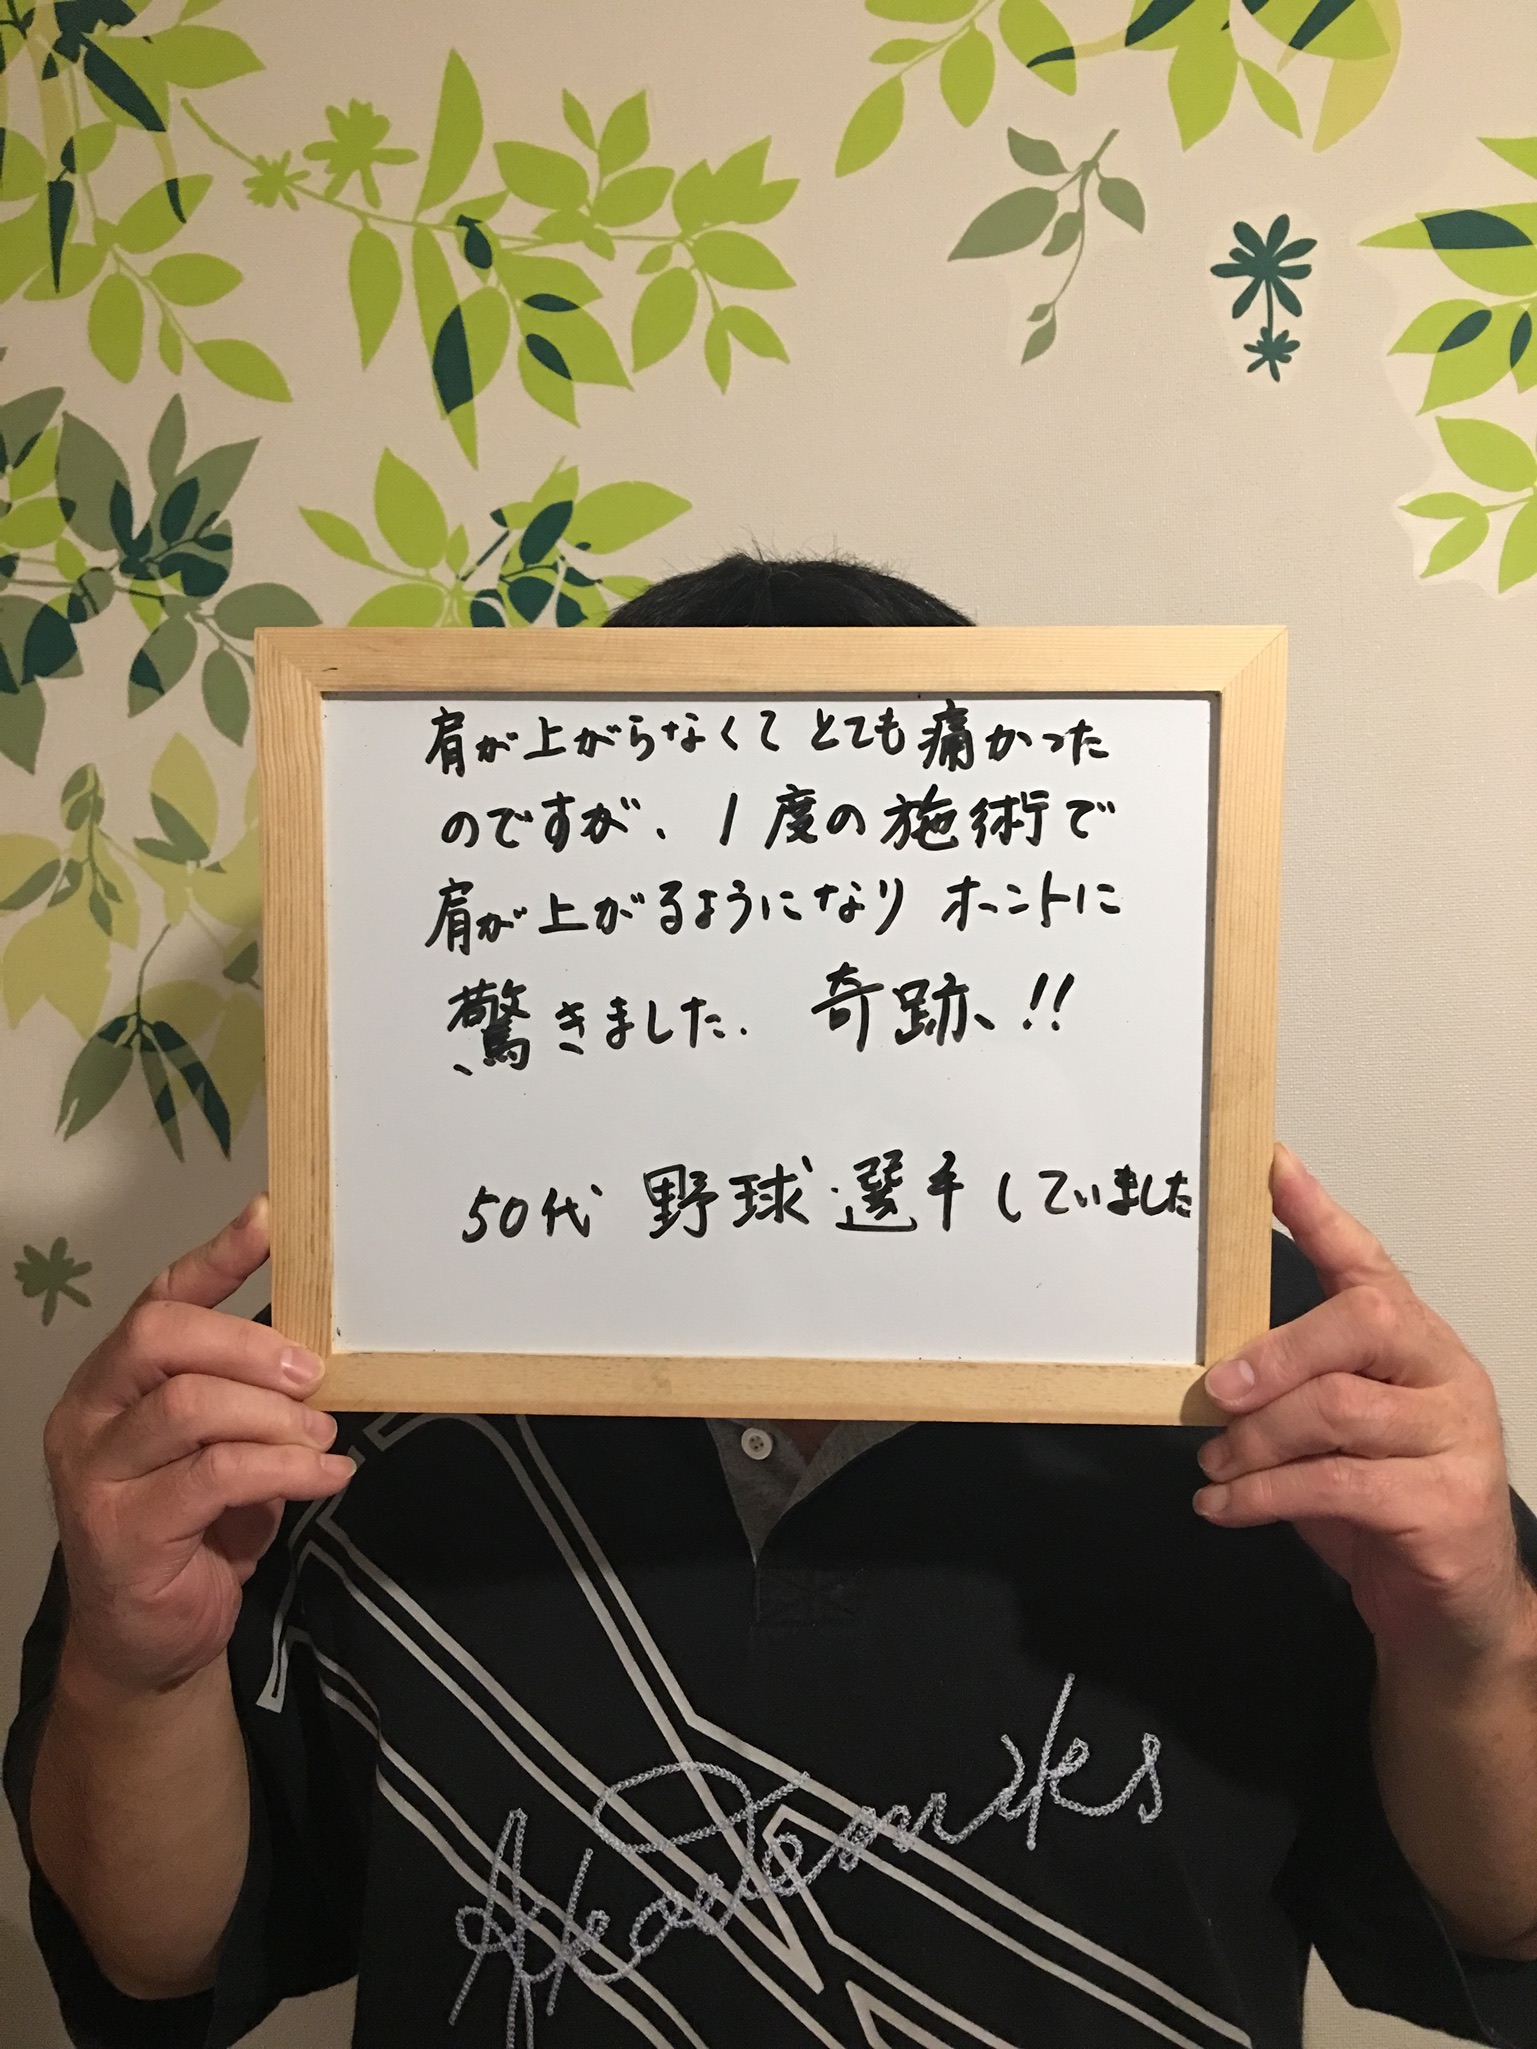 肩が上がらなくてとても痛かった
のですが、1度の施術で
肩が上がるようになり ホントに
驚きました。 奇跡、!!
50代 野球選手していました